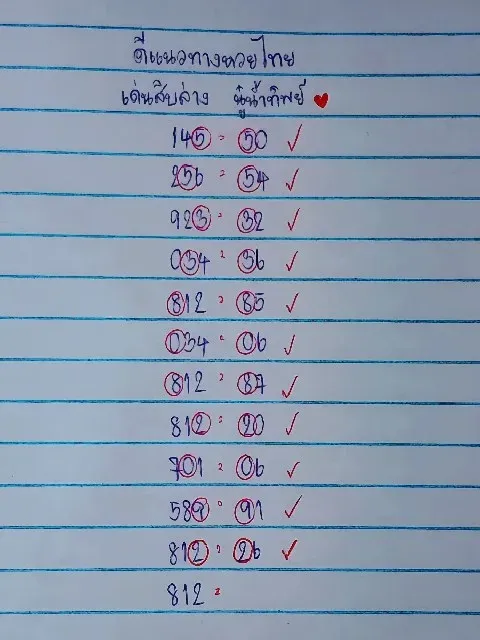 ตีแนวทางหวยไทย
เด่นสิบล่าง นู๋น้ำทิพย์
145 = 50 ✓
256 = 54 ✓
923 = 32 ✓
034 = 36 ✓
812 = 85 ✓
034 = 06 ✓
812 = 87 ✓
812 = 20 ✓
701 = 06 ✓
589 = 91 ✓
812 = 26 ✓
812 =